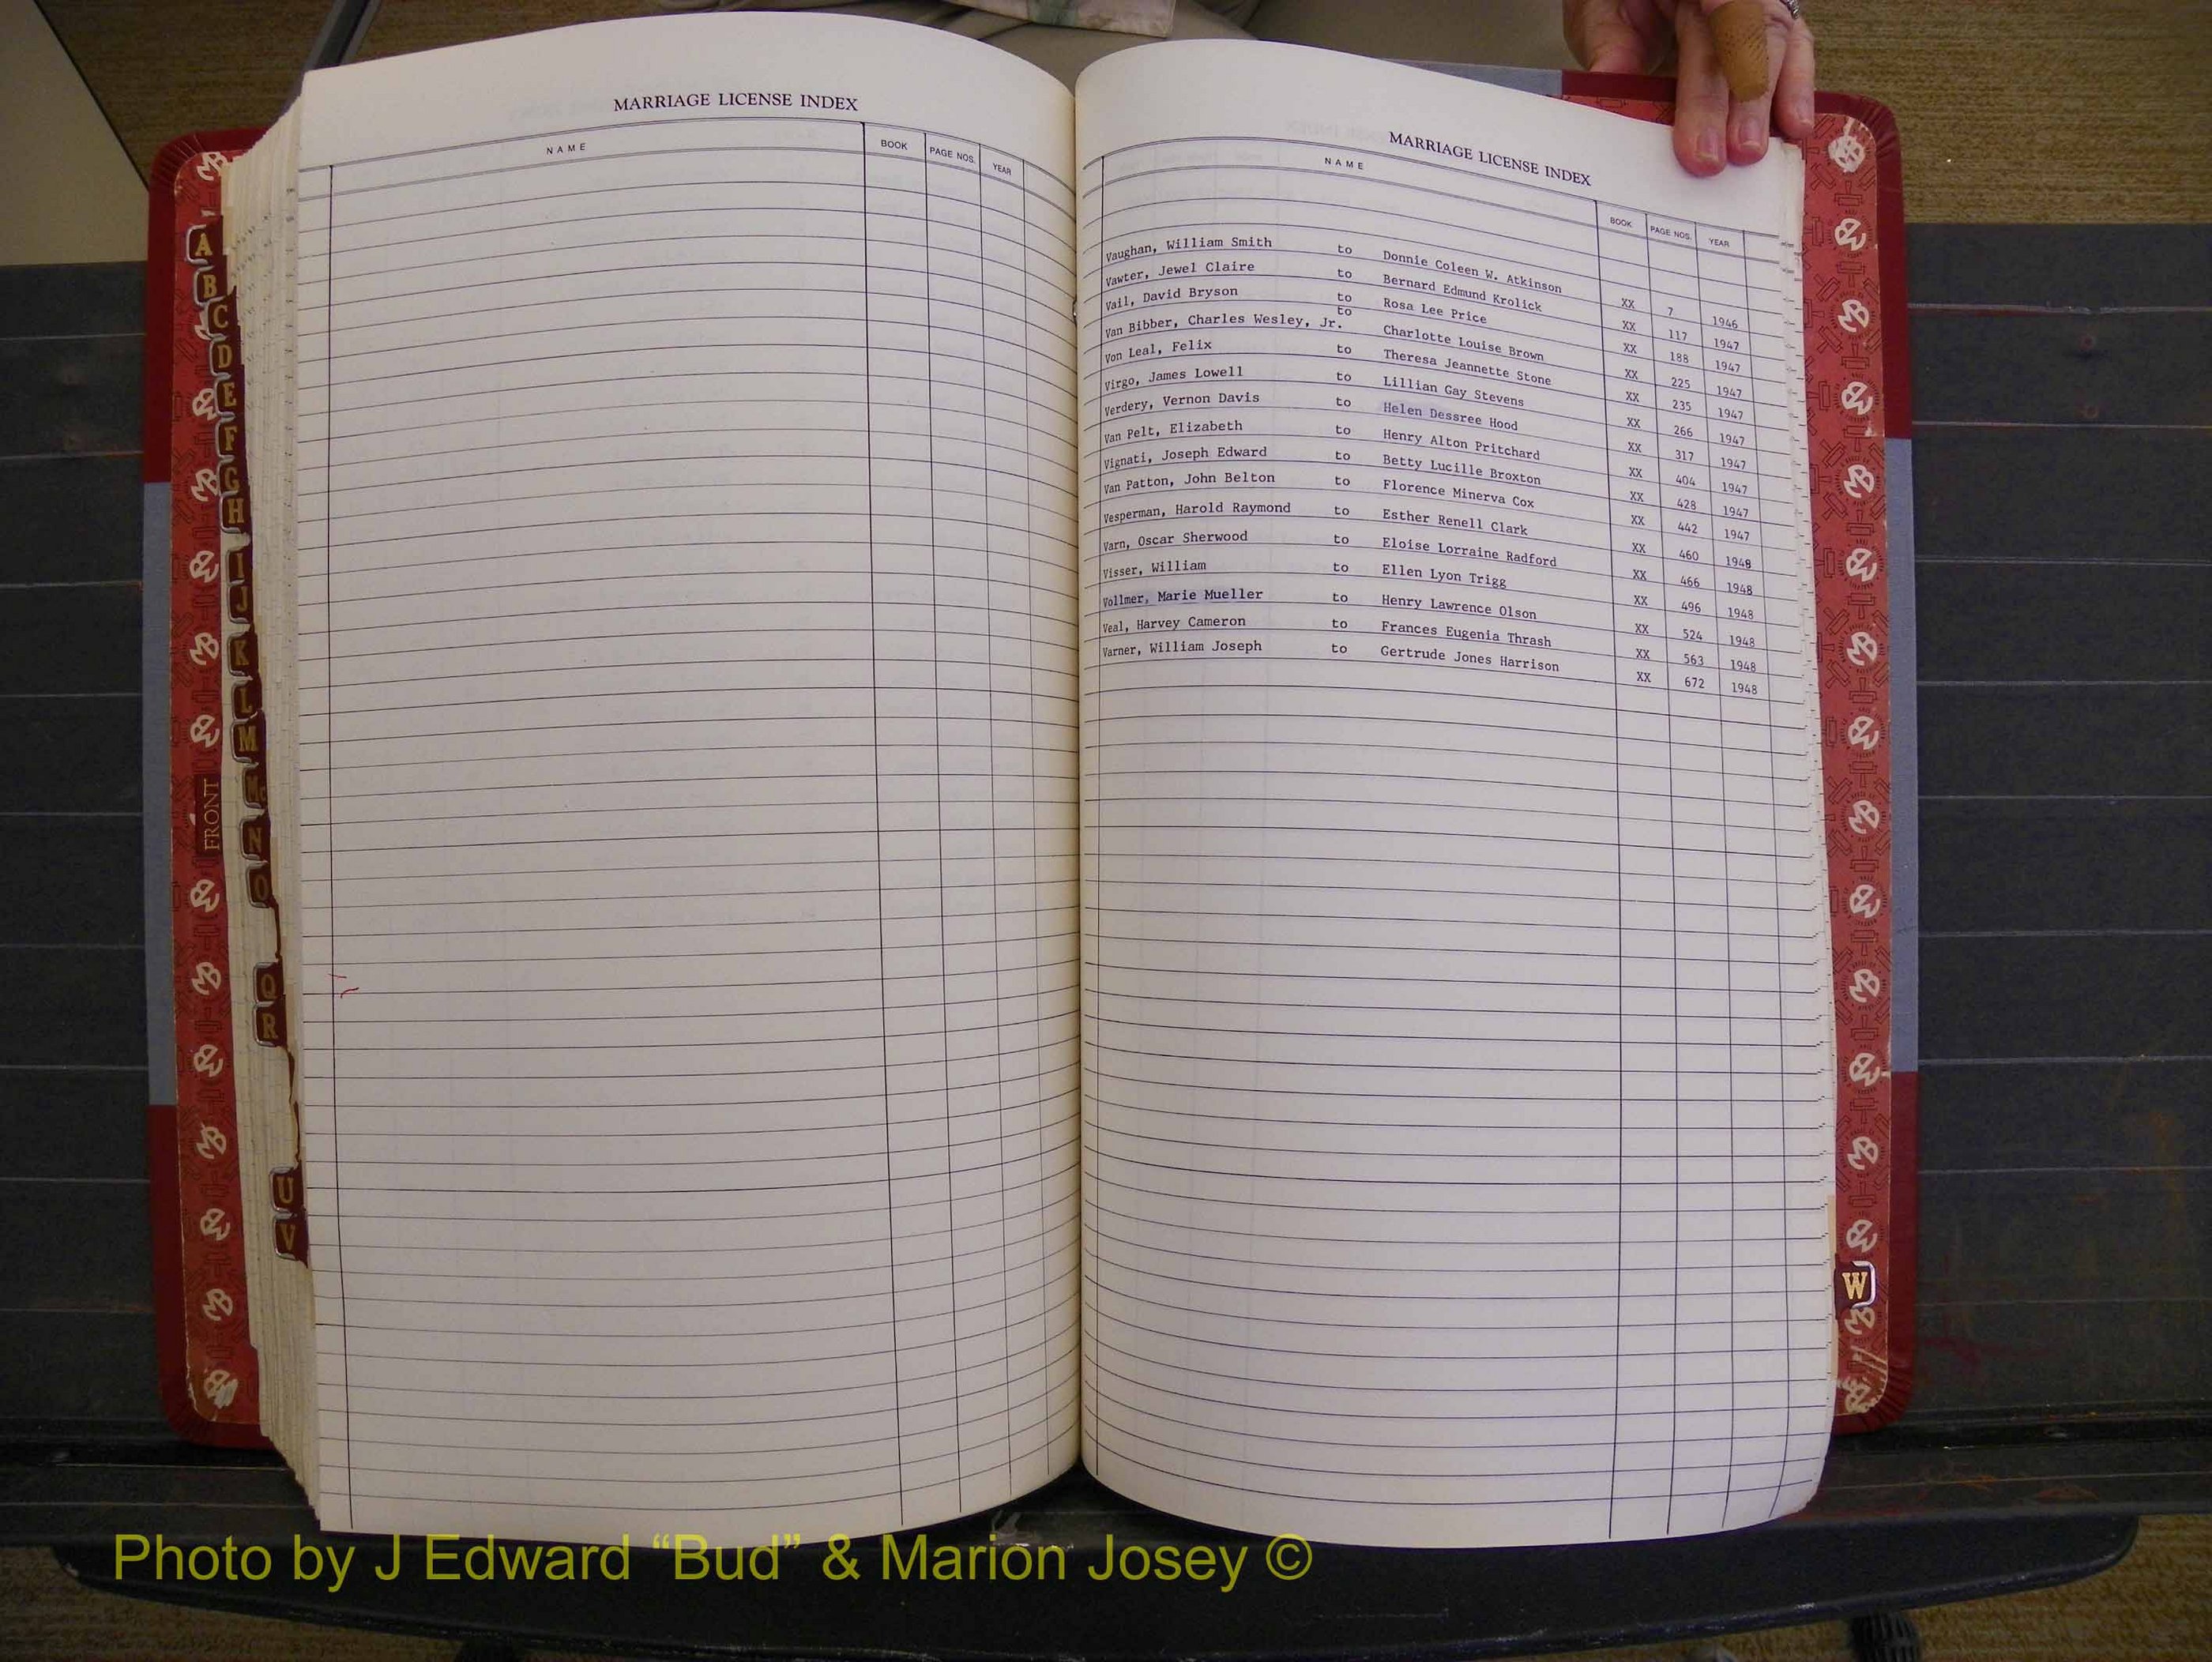 MARRIAGE LICENSE INDEX
NAME BOOK PAGE NOS. YEAR
MARRIAGE LICENSE INDEX
NAME BOOK PAGE NOS. YEAR
Vaughan, William Smith to Donnie Coleen W. Atkinson XX 7 1946
Vawter, Jewel Claire to Bernard Edmund Krolick XX 117 1947
Vail, David Bryson to Rosa Lee Price XX 188 1947
Van Bibber, Charles Wesley, Jr. to Charlotte Louise Brown XX 225 1947
Von Leal, Felix to Theresa Jeannette Stone XX 235 1947
Virgo, James Lowell to Lillian Gay Stevens XX 266 1947
Verdery, Vernon Davis to Helen Dessree Hood XX 317 1947
Van Pelt, Elizabeth to Henry Alton Pritchard XX 404 1947
Vignati, Joseph Edward to Betty Lucille Broxton XX 428 1947
Van Patton, John Belton to Florence Minerva Cox XX 442 1947
Vesperman, Harold Raymond to Esther Renell Clark XX 460 1948
Varn, Oscar Sherwood to Eloise Lorraine Radford XX 466 1948
Visser, William to Ellen Lyon Trigg XX 496 1948
Vollmer, Marie Mueller to Henry Lawrence Olson XX 524 1948
Veal, Harvey Cameron to Frances Eugenia Thrash XX 563 1948
Varner, William Joseph to Gertrude Jones Harrison XX 672 1948
A
B
C
D
E
F
G
H
I
J
K
L
M
Mc
N
O
Q
R
U
V
W
FRONT
Photo by J Edward “Bud” & Marion Josey ©